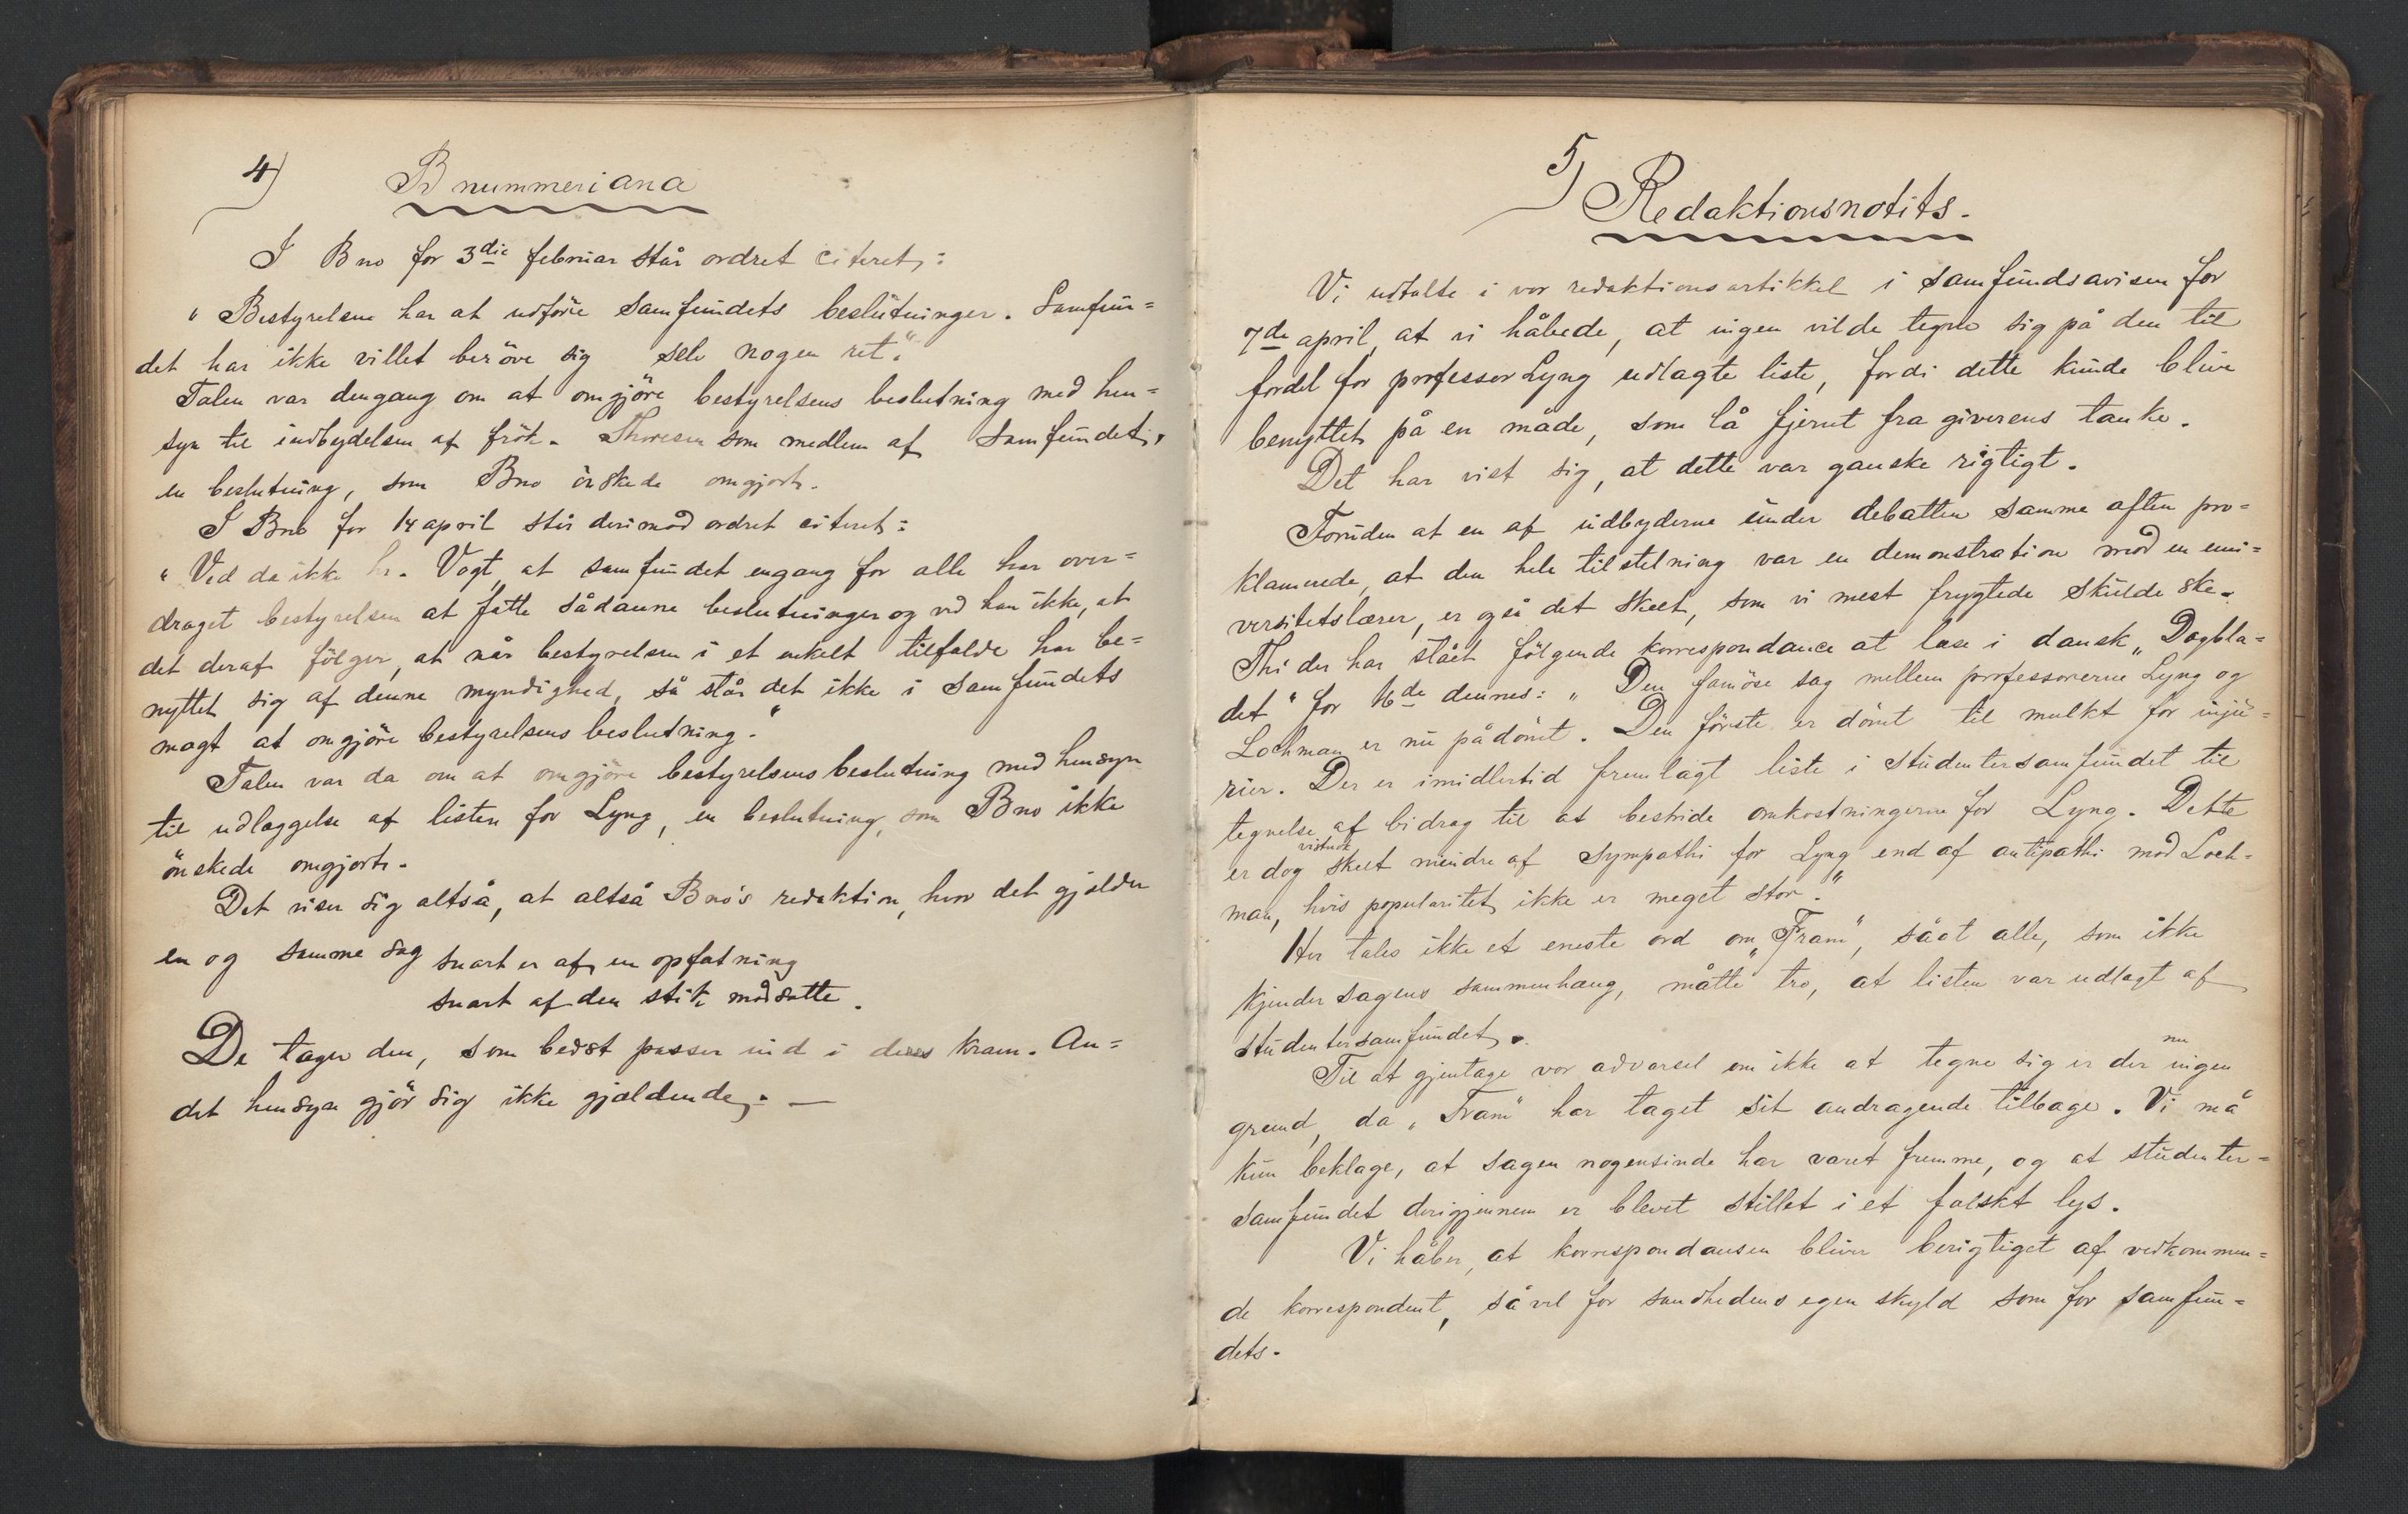 4)
Bnummeriana
I Bno for 3die februar står ordret citeret:
"Bestyrelsen har at udföre Samfundets beslutninger. Samfun=
det har ikke villet beröve sig selv nogen ret".
Talen var dengang om at omgjöre bestyrelsens beslutning med hen=
syn til indbydelsen af frök. Thoresen som medlem af Samfundet,
en beslutning, som Bno önskede omgjort.
I Bno for 14 april står derimod ordret citeret:
"Ved da ikke hr. Vogt, at samfundet engang for alle har over=
draget bestyrelsen at fatte sådanne beslutninger og ved han ikke, at
det deraf fölger, at når bestyrelsen i et enkelt tilfælde har be=
nyttet sig af denne myndighed, så står det ikke i Samfundets
magt at omgjöre bestyrelsens beslutning."
Talen var da om at omgjöre bestyrelsens beslutning med hensyn
til udlæggelse af listen for Lyng, en beslutning, som Bno ikke
önskede omgjort.
Det viser sig altså, at altså Bno's redaktion, hvor det gjælder
en og samme sag snart er af en opfatning
snart af den stik modsatte.
De tager den, som bedst passer ind i deres kram. An=
det hensyn gjör sig ikke gjældende. —
5)
Redaktionsnotits.
Vi udtalte i vor redaktionsartikkel i Samfundsavisen for
7de april, at vi håbede, at ingen vilde tegne sig på den til
fordel for professor Lyng udlagte liste, fordi dette kunde blive
benyttet på en måde, som lå fjernt fra giverens tanke.
Det har vist sig, at dette var ganske rigtigt.
Foruden at en af udbyderne under debatten samme aften pro=
klamerede, at den hele tilstelning var en demonstration mod en uni=
versitetslærer, er også det skeet, som vi mest frygtede skulde ske.
Thi der har stået fölgende korrespondance at læse i dansk "Dagbla=
det" for 16de dennes: "Den famöse sag mellem professorerne Lyng og
Lochman er nu pådömt. Den förste er dömt til mulkt for inju=
rier. Der er imidlertid fremlagt liste i Studentersamfundet til
tegnelse af bidrag til at bestride omkostningerne for Lyng. Dette
er dog vistnok skeet mindre af sympathi for Lyng end af antipathi mod Loch=
man, hvis popularitet ikke er meget stor."
Her tales ikke et eneste ord om "Fram", såat alle, som ikke
kjender sagens sammenhæng, måtte tro, at listen var udlagt af
studentersamfundet.
Til at gjentage vor advarsel om ikke at tegne sig er der nu ingen
grund, da "Fram" har taget sit andragende tilbage. Vi må
kun beklage, at sagen nogensinde har været fremme, og at studenter=
samfundet derigjennem er blevet stillet i et falskt lys.
Vi håber, at korrespondansen bliver berigtiget af vedkommen=
de korrespondent, såvel for sandhedens egen skyld som for samfun=
dets.